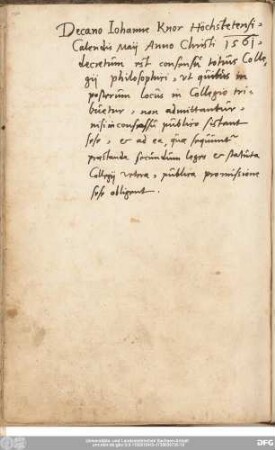 Decano Iohanne Knor Hochstetensi
Calendis Maij Anno Christi 1561
decretum est consensu totius Colle-
gij philosophici, ut quibus in
posterum locus in Collegio tri-
buetur, non admittantur,
nisi in consessu publico sistant
sese, et ad ea, quae sequuntur
praestanda secundum leges et statuta
Collegij vetera, publica promissione
sese obligent.